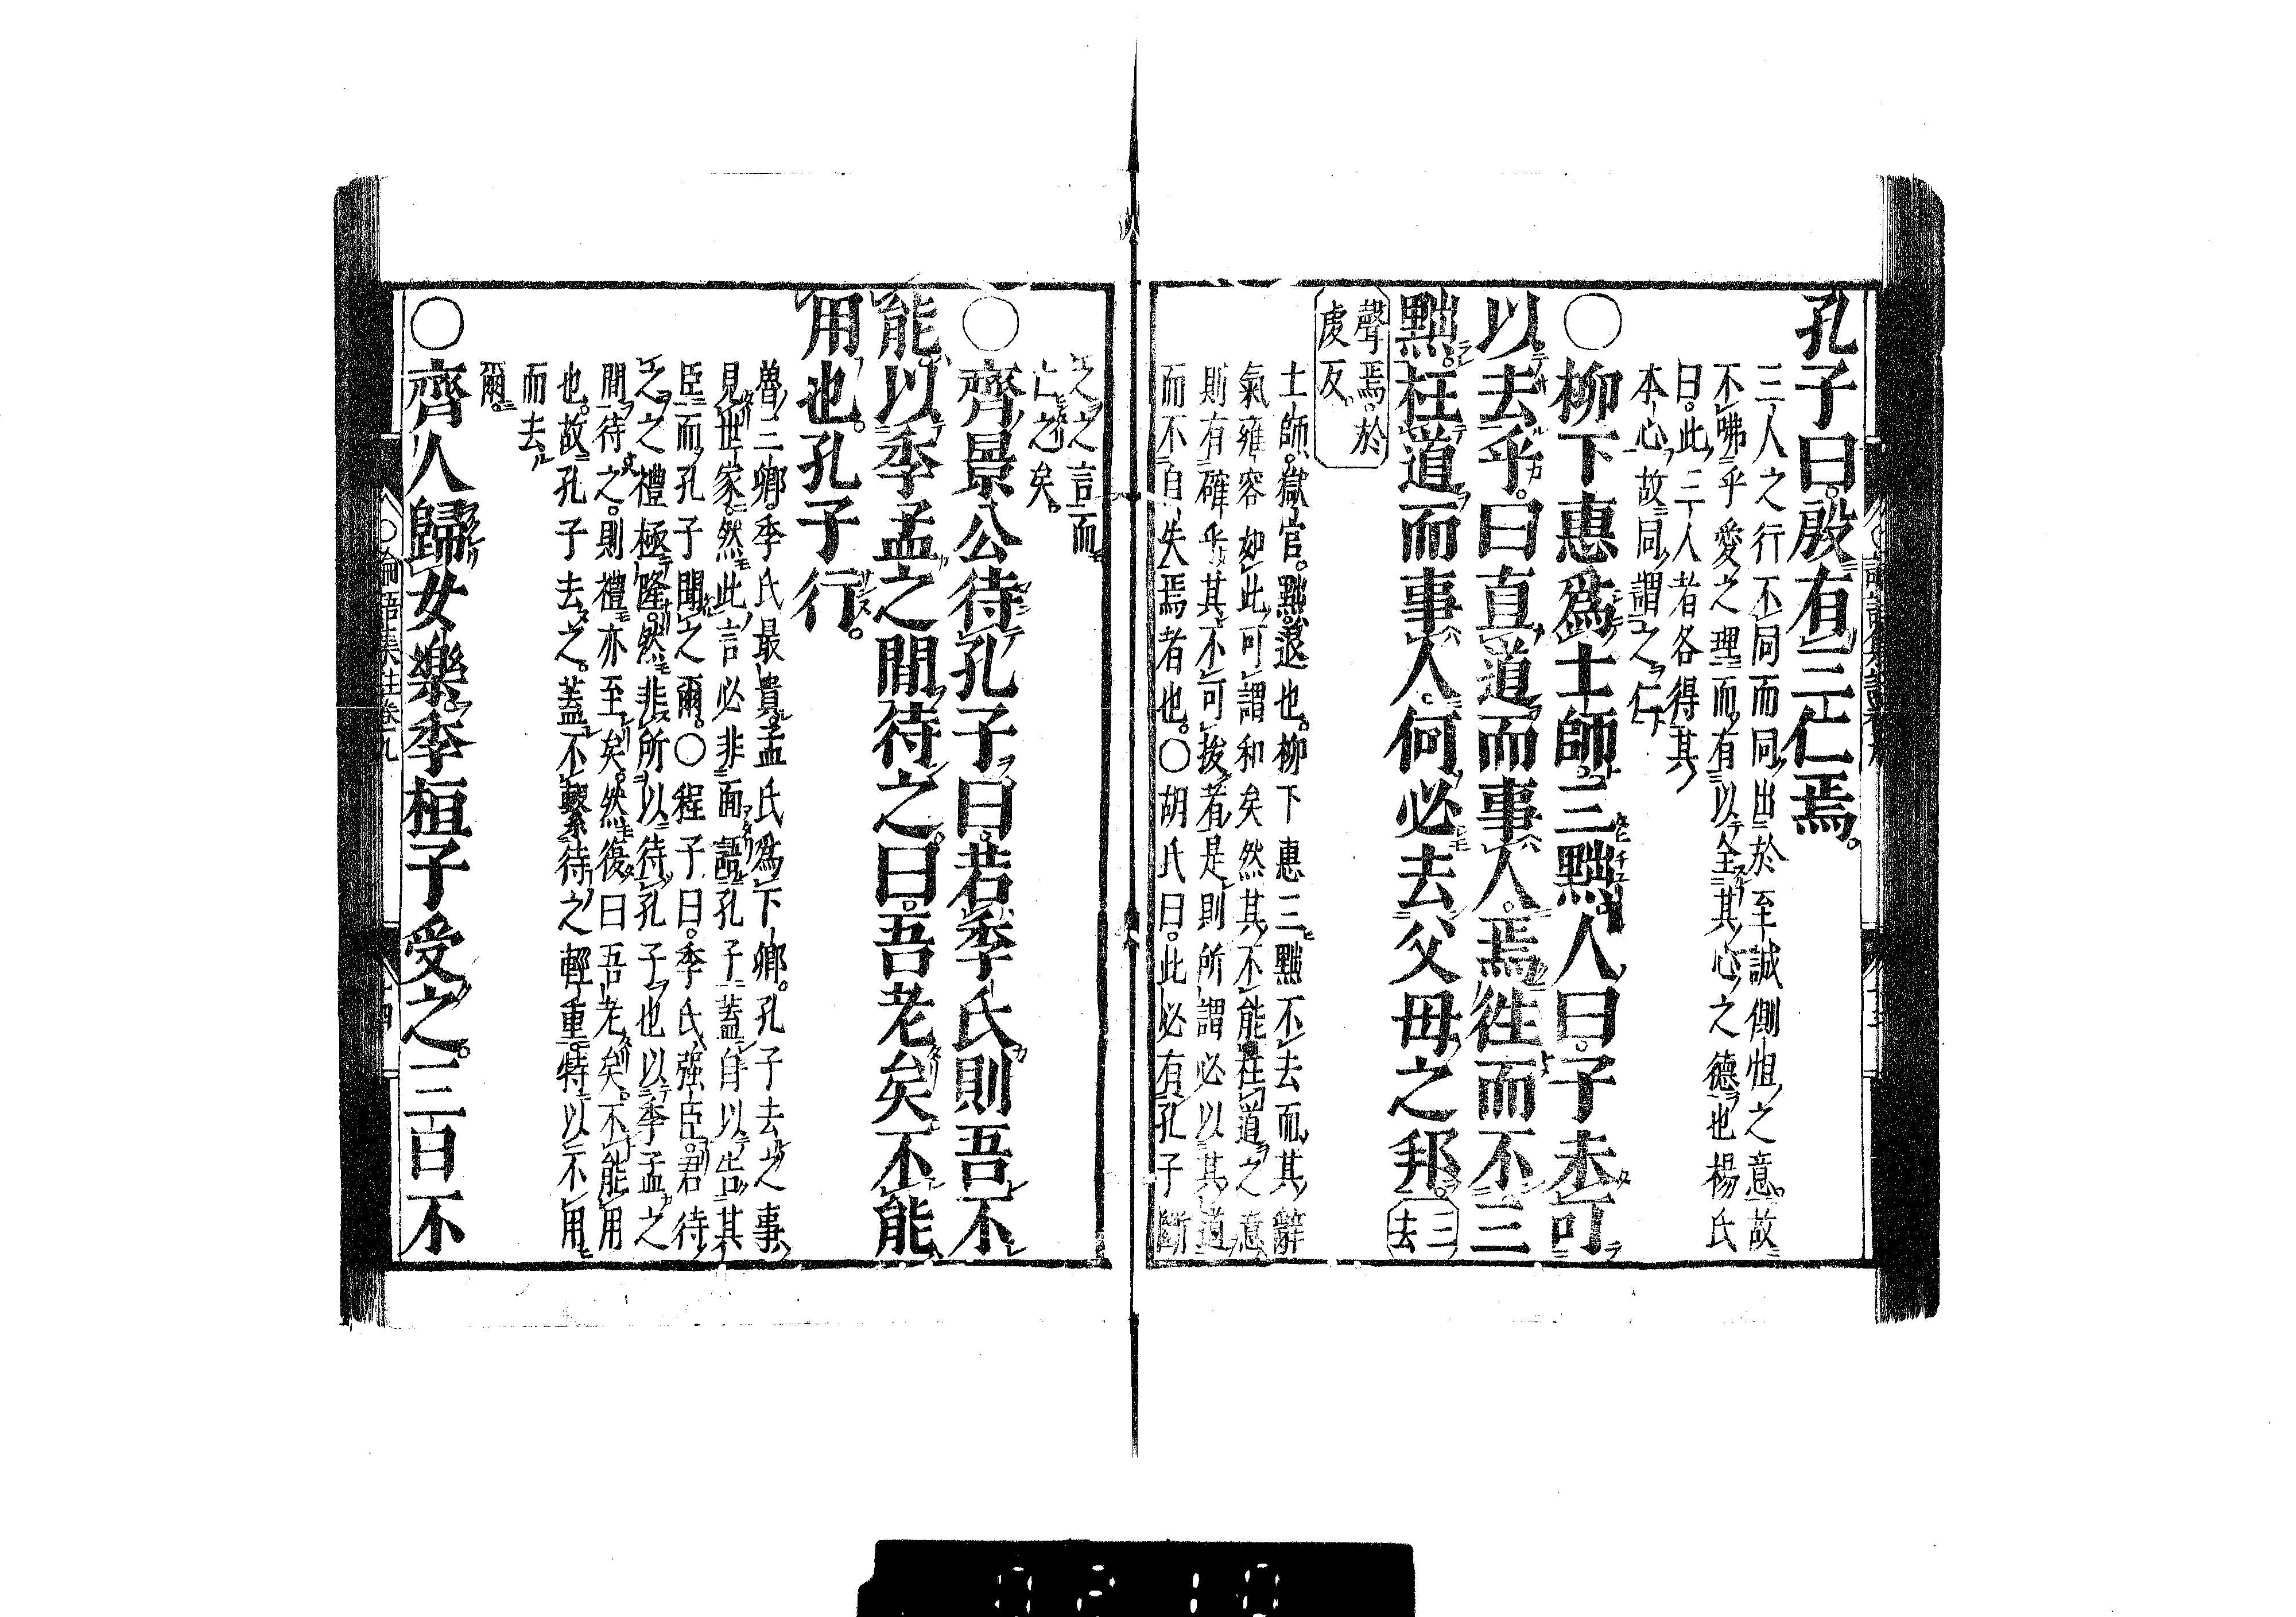 孔子曰。殷有三仁焉。
三人之行不同而同出於至誠惻怛之意。故
不咈乎愛之理而有以全其心之德也楊氏
曰。此三人者各得其
本心故同謂之仁
〇柳下惠爲士師。三黜。人曰。子未可
以去乎。曰直道而事人。焉往而不三
黜。枉道而事人。何必去父母之邦。三去
聲焉。於
虔反。
士師。獄官。黜。退也。柳下惠三黜不去而其辭
氣雍容如此可謂和矣然其不能枉道之意
則有確乎其不可拔者是則所謂必以其道
而不自失焉者也。〇胡氏曰。此必有孔子斷
之之言而
亡之矣。
〇齊景公待孔子曰。若季氏則吾不
能。以季孟之閒待之。曰。吾老矣不能
用也。孔子行。
魯三卿。季氏最貴。孟氏爲下卿。孔子去之事
見世家。然此言必非面語孔子蓋自以告其
臣而孔子聞之爾。〇程子曰。季氏强臣。君待
之之禮極隆。然非所以待孔子也以季孟之
閒待之。則禮亦至矣。然復曰吾老矣。不能用
也。故孔子去之。蓋不繫待之輕重。特以不用
而去
爾。
〇齊人歸女樂。季桓子受之。三百不
〇論語集註卷九
十四